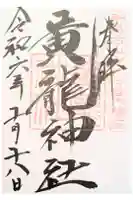 奉拝
黄龍神社
令和六年十一月十八日